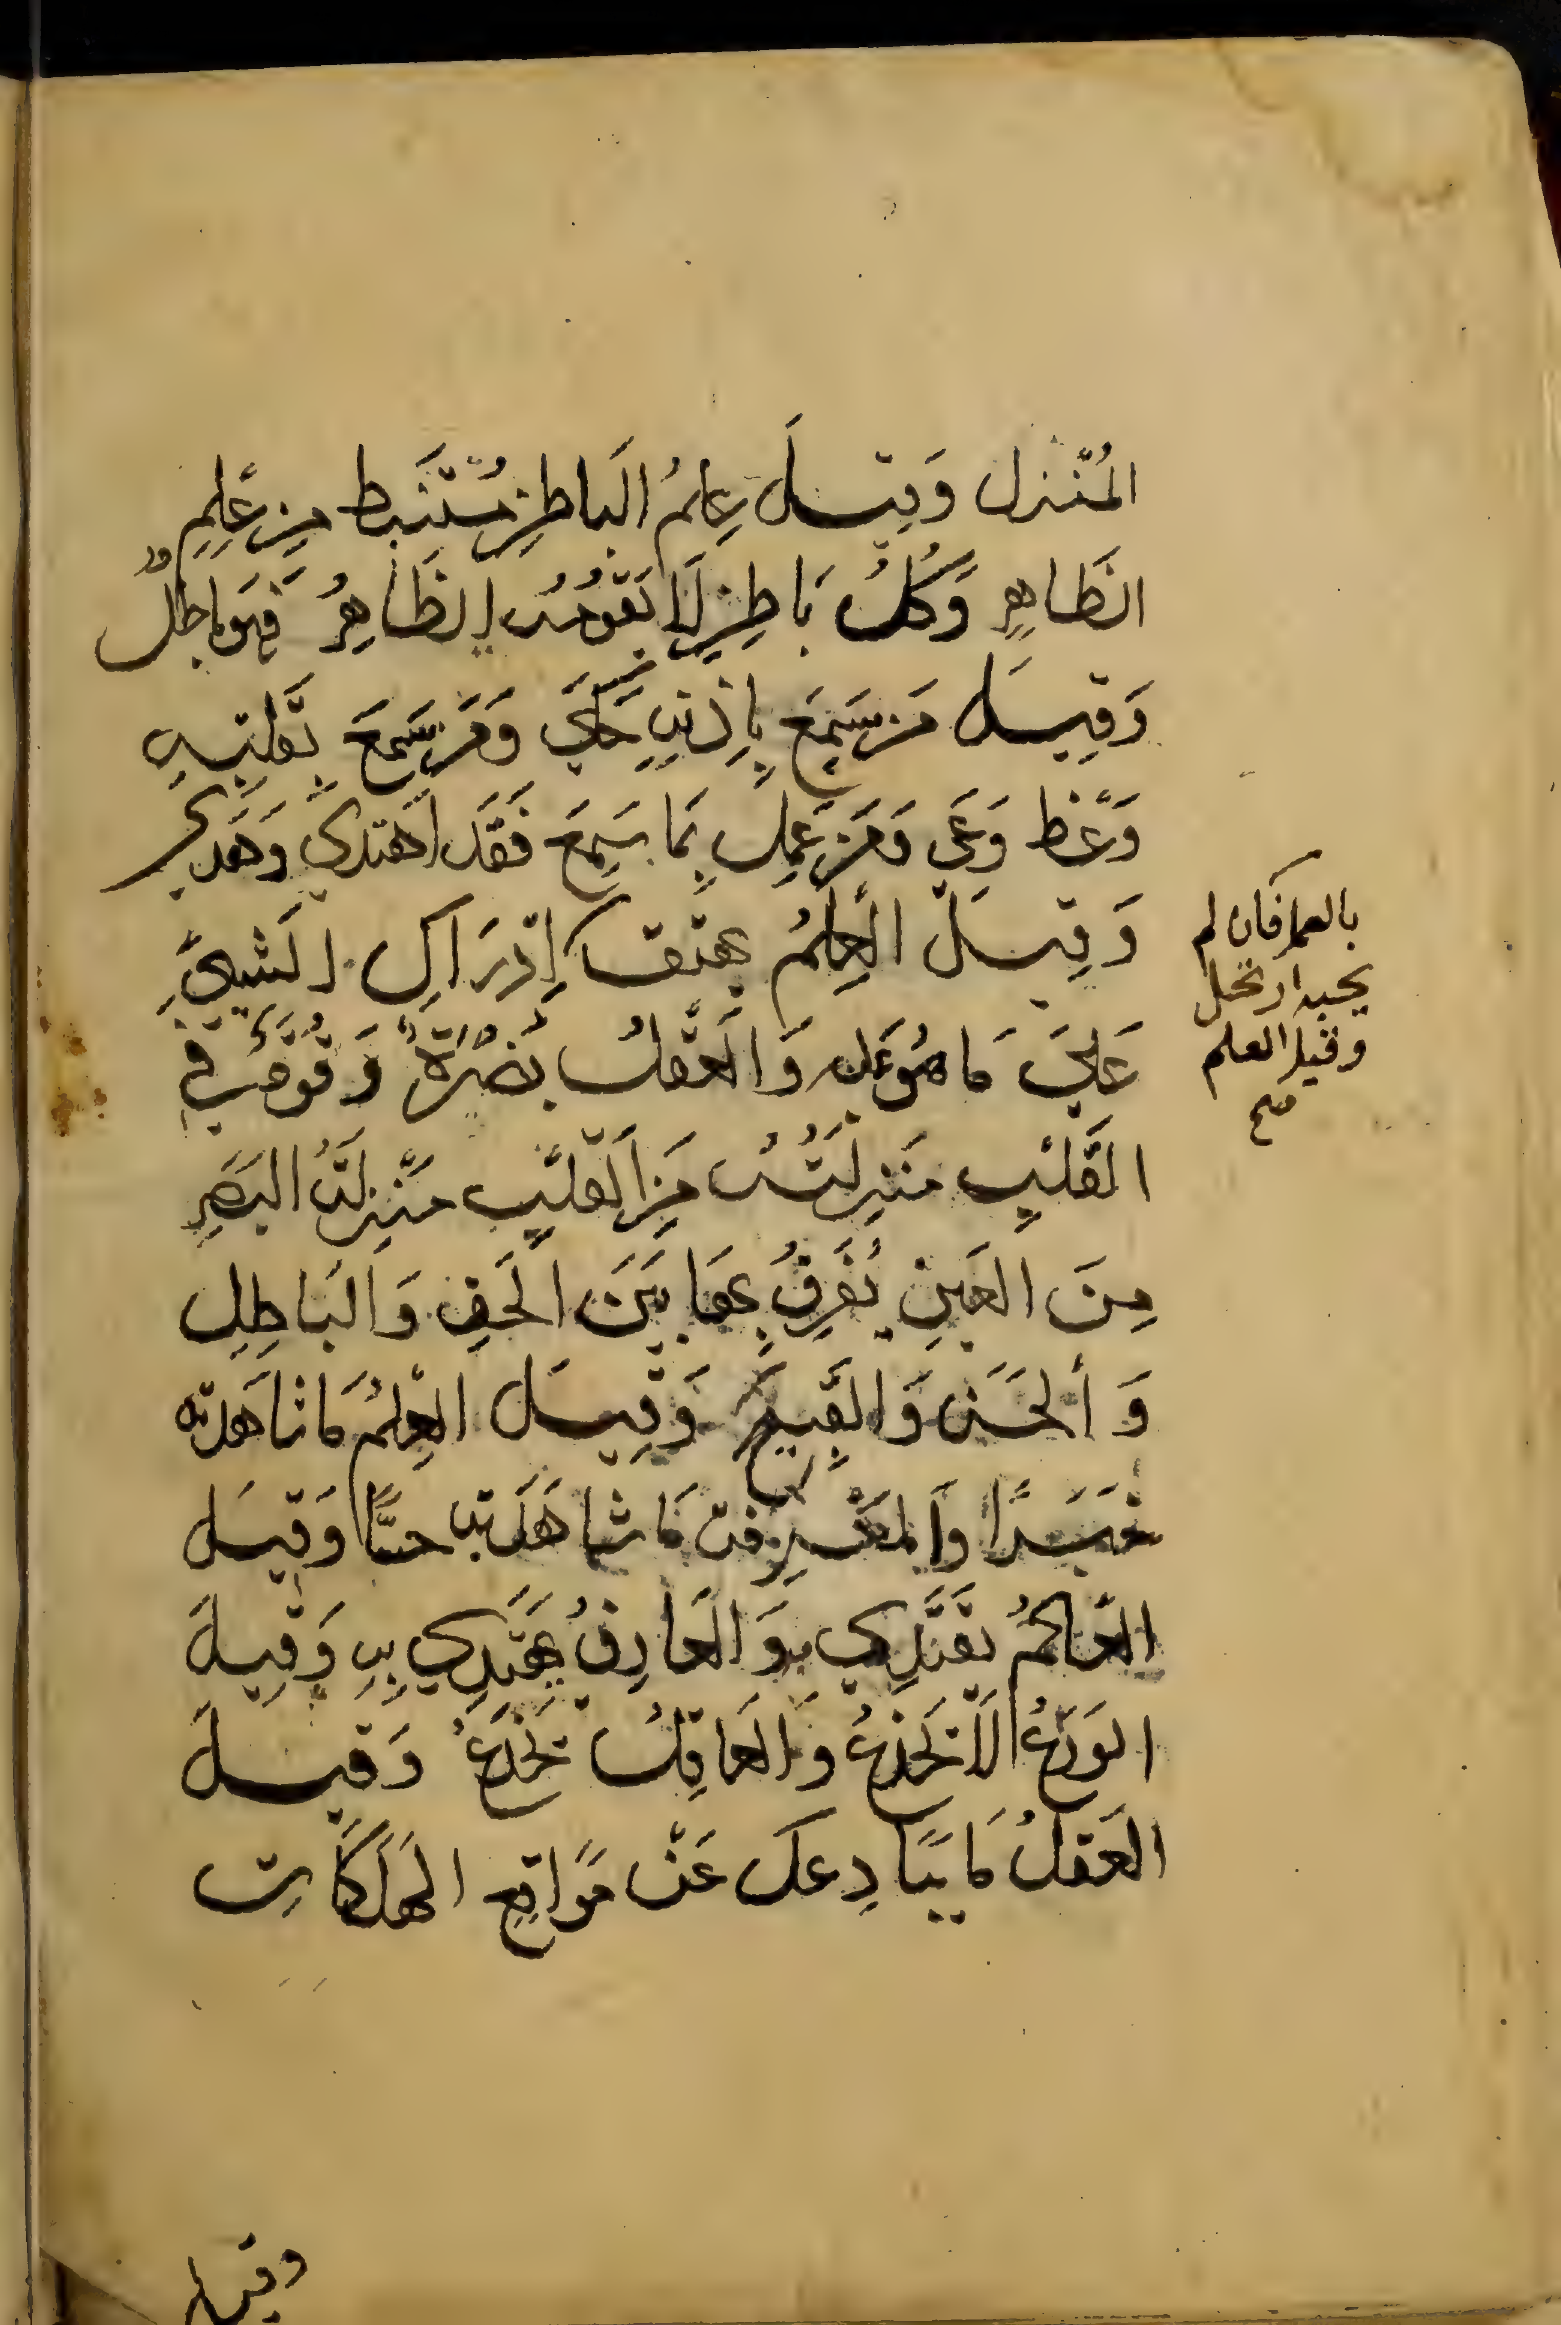 المُنْزل وَقِيلَ عِلمُ البَاطِنِ مُسْتَنبَط مِن عِلِمِ
الظَاهِرِ وَكُلُّ بَاطِنٍ لَا يَقوّمُه الظَاهِرُ فَهَوَ باطِلٌ
وَقِيلَ مَن سَمِعَ بِاذنِهِ حَكَى وَمَن سَمِعَ بِقَلبِهِ
وَعَظ وَعَى وَمَن عَمِلَ بِمَا سَمِعَ فَقَد اهتَدى وَهَدى
وَقِيلَ العِلمُ يهتف
بالعمل فان لم
يجبه ارتحل
وقيل العلم
صح
اِدْرَاكِ الشيئِ
عَلَى مَا هُوَ عَليه وَالعَقلُ بَصْرَةٌ وَقُوَّةٌ فِي
القَلْبِ مَنزِلَتُه مِنَ القَلبِ مَنْزِلَةُ البَصَرِ
مِنَ العَينِ يُفَرِقُ بِهَا بَيَنَ الحَقِ وَالبَاطِلِ
وَألحَسَن وَالقَبِيحِ وَقِيلَ العِلمُ مَا شاهَدته
خَبَرًا وَالمَعْرِفة مَا شاهَدَته حسًّا وَقِيلَ
العَالمُ يَقتَدِى به وَالعَارِفُ يَهتَدِي بِهِ وَقِيلَ
الوَرَعُ لَا يَخدَعُ وَالعَاقِلُ يُخدَعُ وَقِيلَ
العَقلُ مَا يبَاعدك عَنْ مَوَاقِعِ الهَلَكَاتِ
وقيل